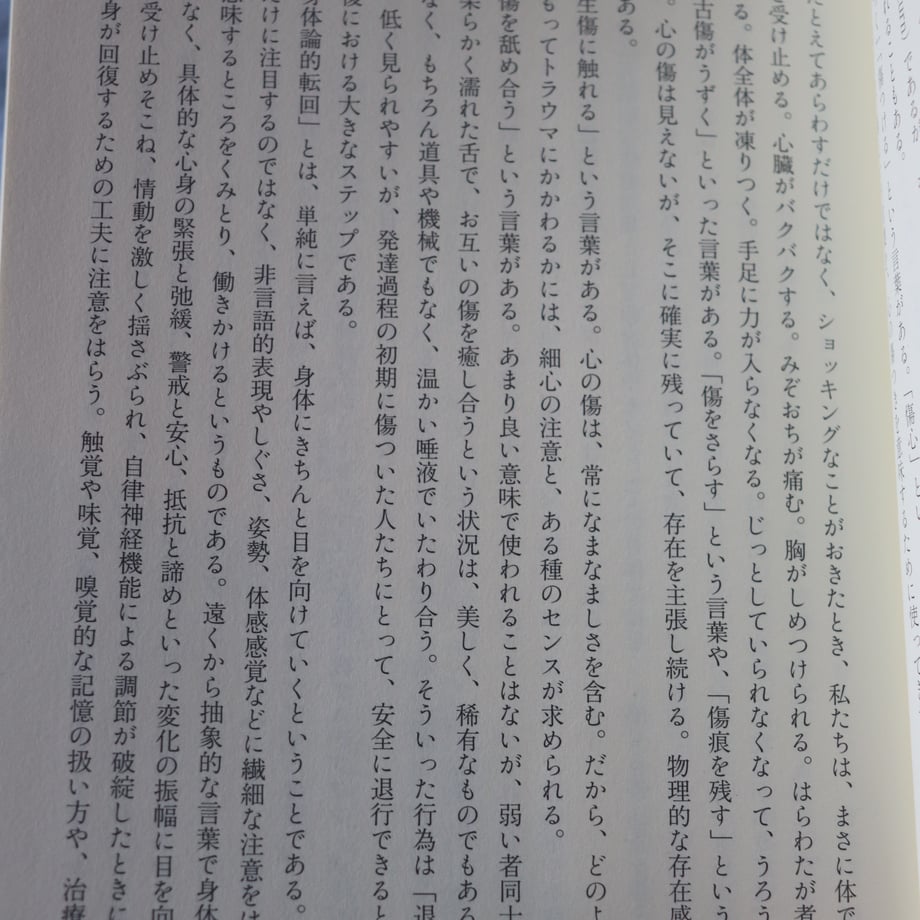 たとえてあらわすだけではなく、ショッキングなことがおきたとき、私たちは、まさに体で
受け止める。心臓がバクバクする。みぞおちが痛む。胸がしめつけられる。はらわたが煮
る。体全体が凍りつく。手足に力が入らなくなる。じっとしていられなくなって、うろう
古傷がうずく」といった言葉がある。「傷をさらす」という言葉や、「傷痕を残す」という
。心の傷は見えないが、そこに確実に残っていて、存在を主張し続ける。物理的な存在感
ある。
生傷に触れる」という言葉がある。心の傷は、常になまなましさを含む。だから、どのよ
もってトラウマにかかわるかには、細心の注意と、ある種のセンスが求められる。
傷を舐め合う」という言葉がある。あまり良い意味で使われることはないが、弱い者同士
柔らかく濡れた舌で、お互いの傷を癒し合うという状況は、美しく、稀有なものでもある
なく、もちろん道具や機械でもなく、温かい唾液でいたわり合う。そういった行為は「退
低く見られやすいが、発達過程の初期に傷ついた人たちにとって、安全に退行できると
後における大きなステップである。
身体論的転回」とは、単純に言えば、身体にきちんと目を向けていくということである。
だけに注目するのではなく、非言語的表現やしぐさ、姿勢、体感感覚などに繊細な注意をは
意味するところをくみとり、働きかけるというものである。遠くから抽象的な言葉で身体
なく、具体的な心身の緊張と弛緩、警戒と安心、抵抗と諦めといった変化の振幅に目を向
受け止めそこね、情動を激しく揺さぶられ、自律神経機能による調節が破綻したときに
身が回復するための工夫に注意をはらう。触覚や味覚、嗅覚的な記憶の扱い方や、治療